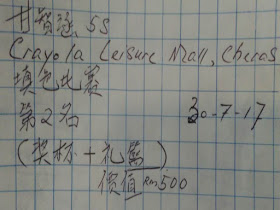 甘贊滔 5S
Crayola Leisure Mall, Cheras
填色比赛
第2名 30-7-17
(奖杯 + 礼篮)
价值 RM500